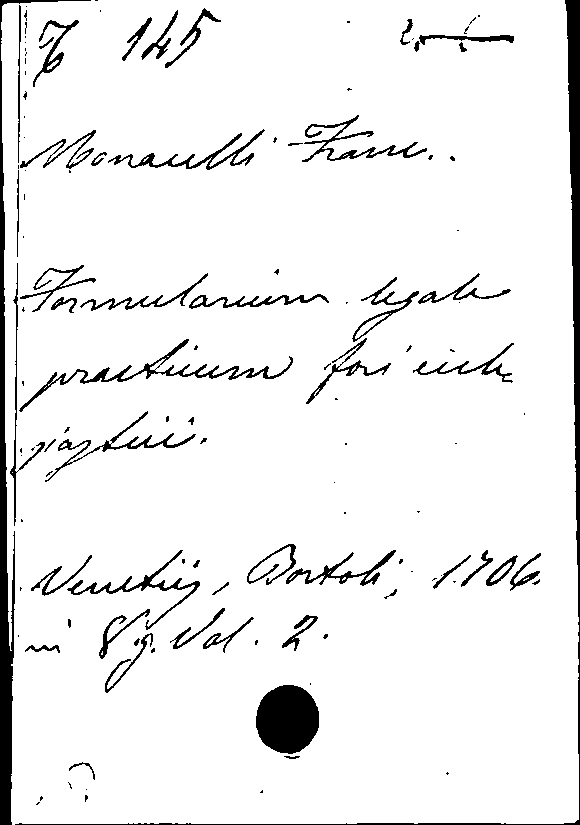 145
Monacelli Franc.
Formularium legale
practicum fori eccle=
siastici.
Venetiis, Bortoli, 1706.
in 8 g. Vol. 2.